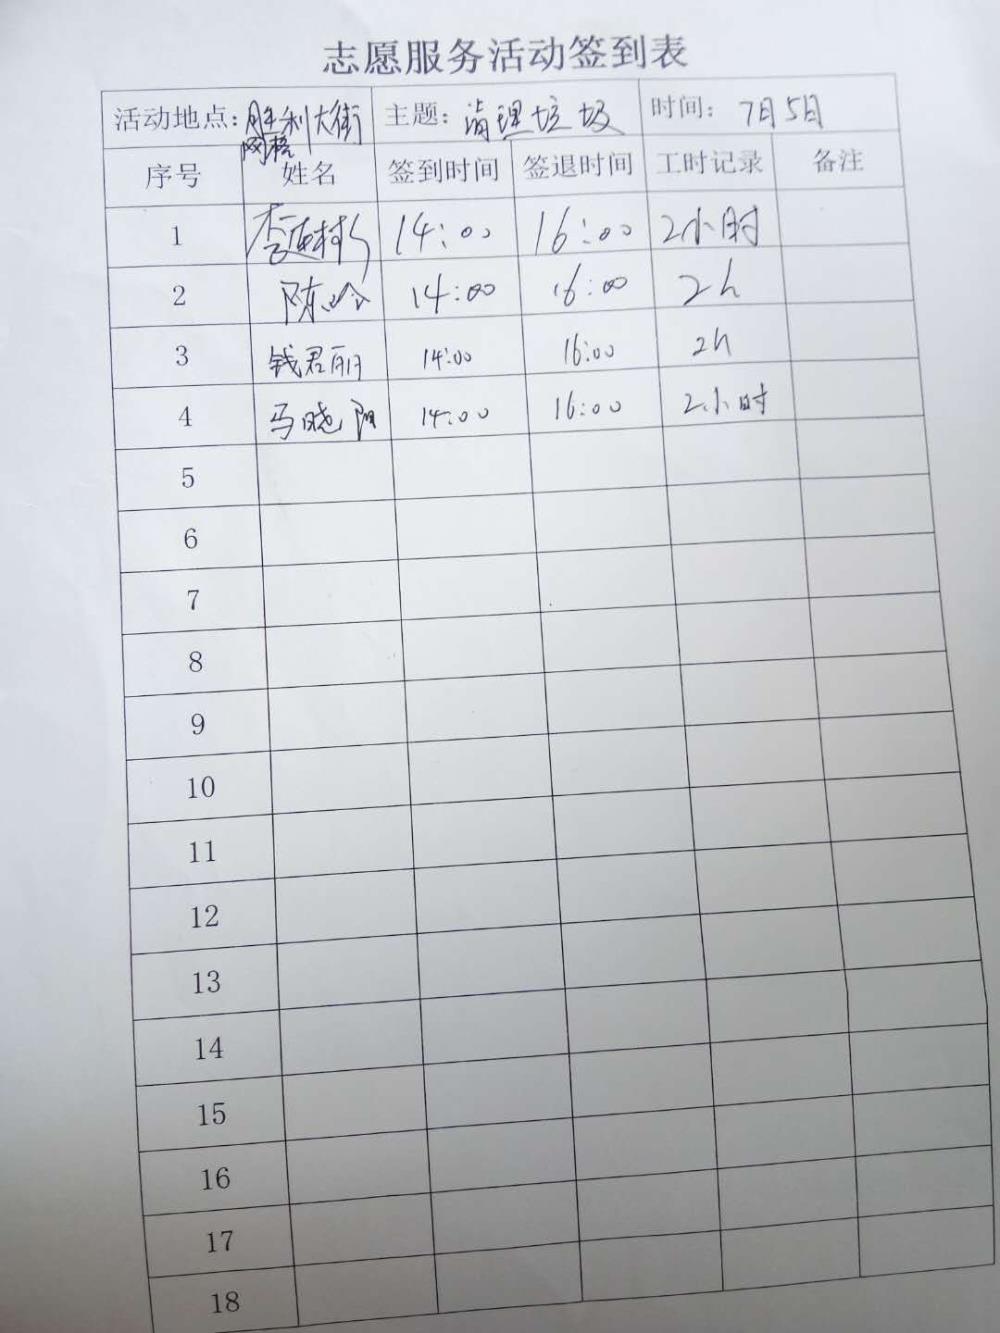 志愿服务活动签到表
活动地点: 胜利大街网格 主题: 清理垃圾 时间: 7月5日
序号 姓名 签到时间 签退时间 工时记录 备注
1 李连彬 14:00 16:00 2小时
2 陈玲 14:00 16:00 2h
3 钱君丽 14:00 16:00 2h
4 马晓阳 14:00 16:00 2小时
5
6
7
8
9
10
11
12
13
14
15
16
17
18